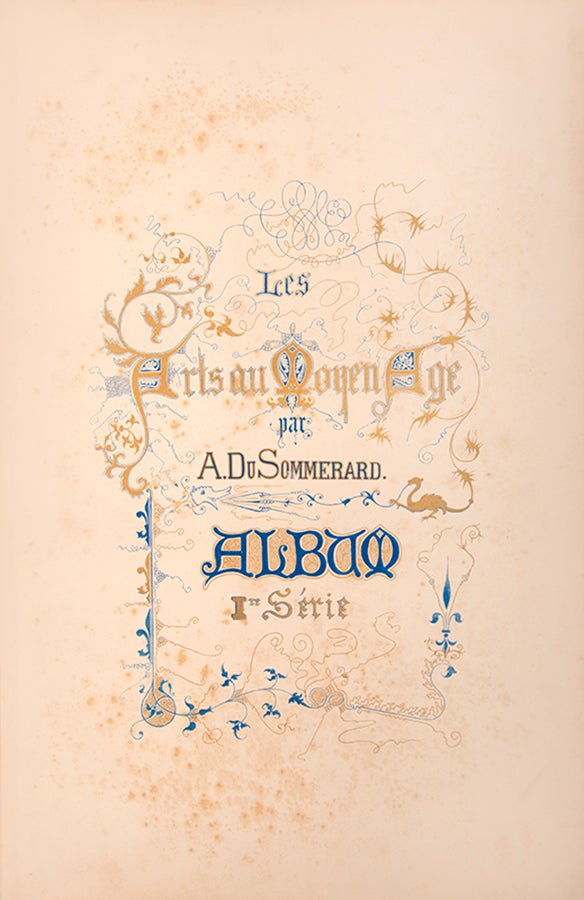 Les
Arts au Moyen Age
par
A. DU SOMMERARD.
ALBUM
Ire Série